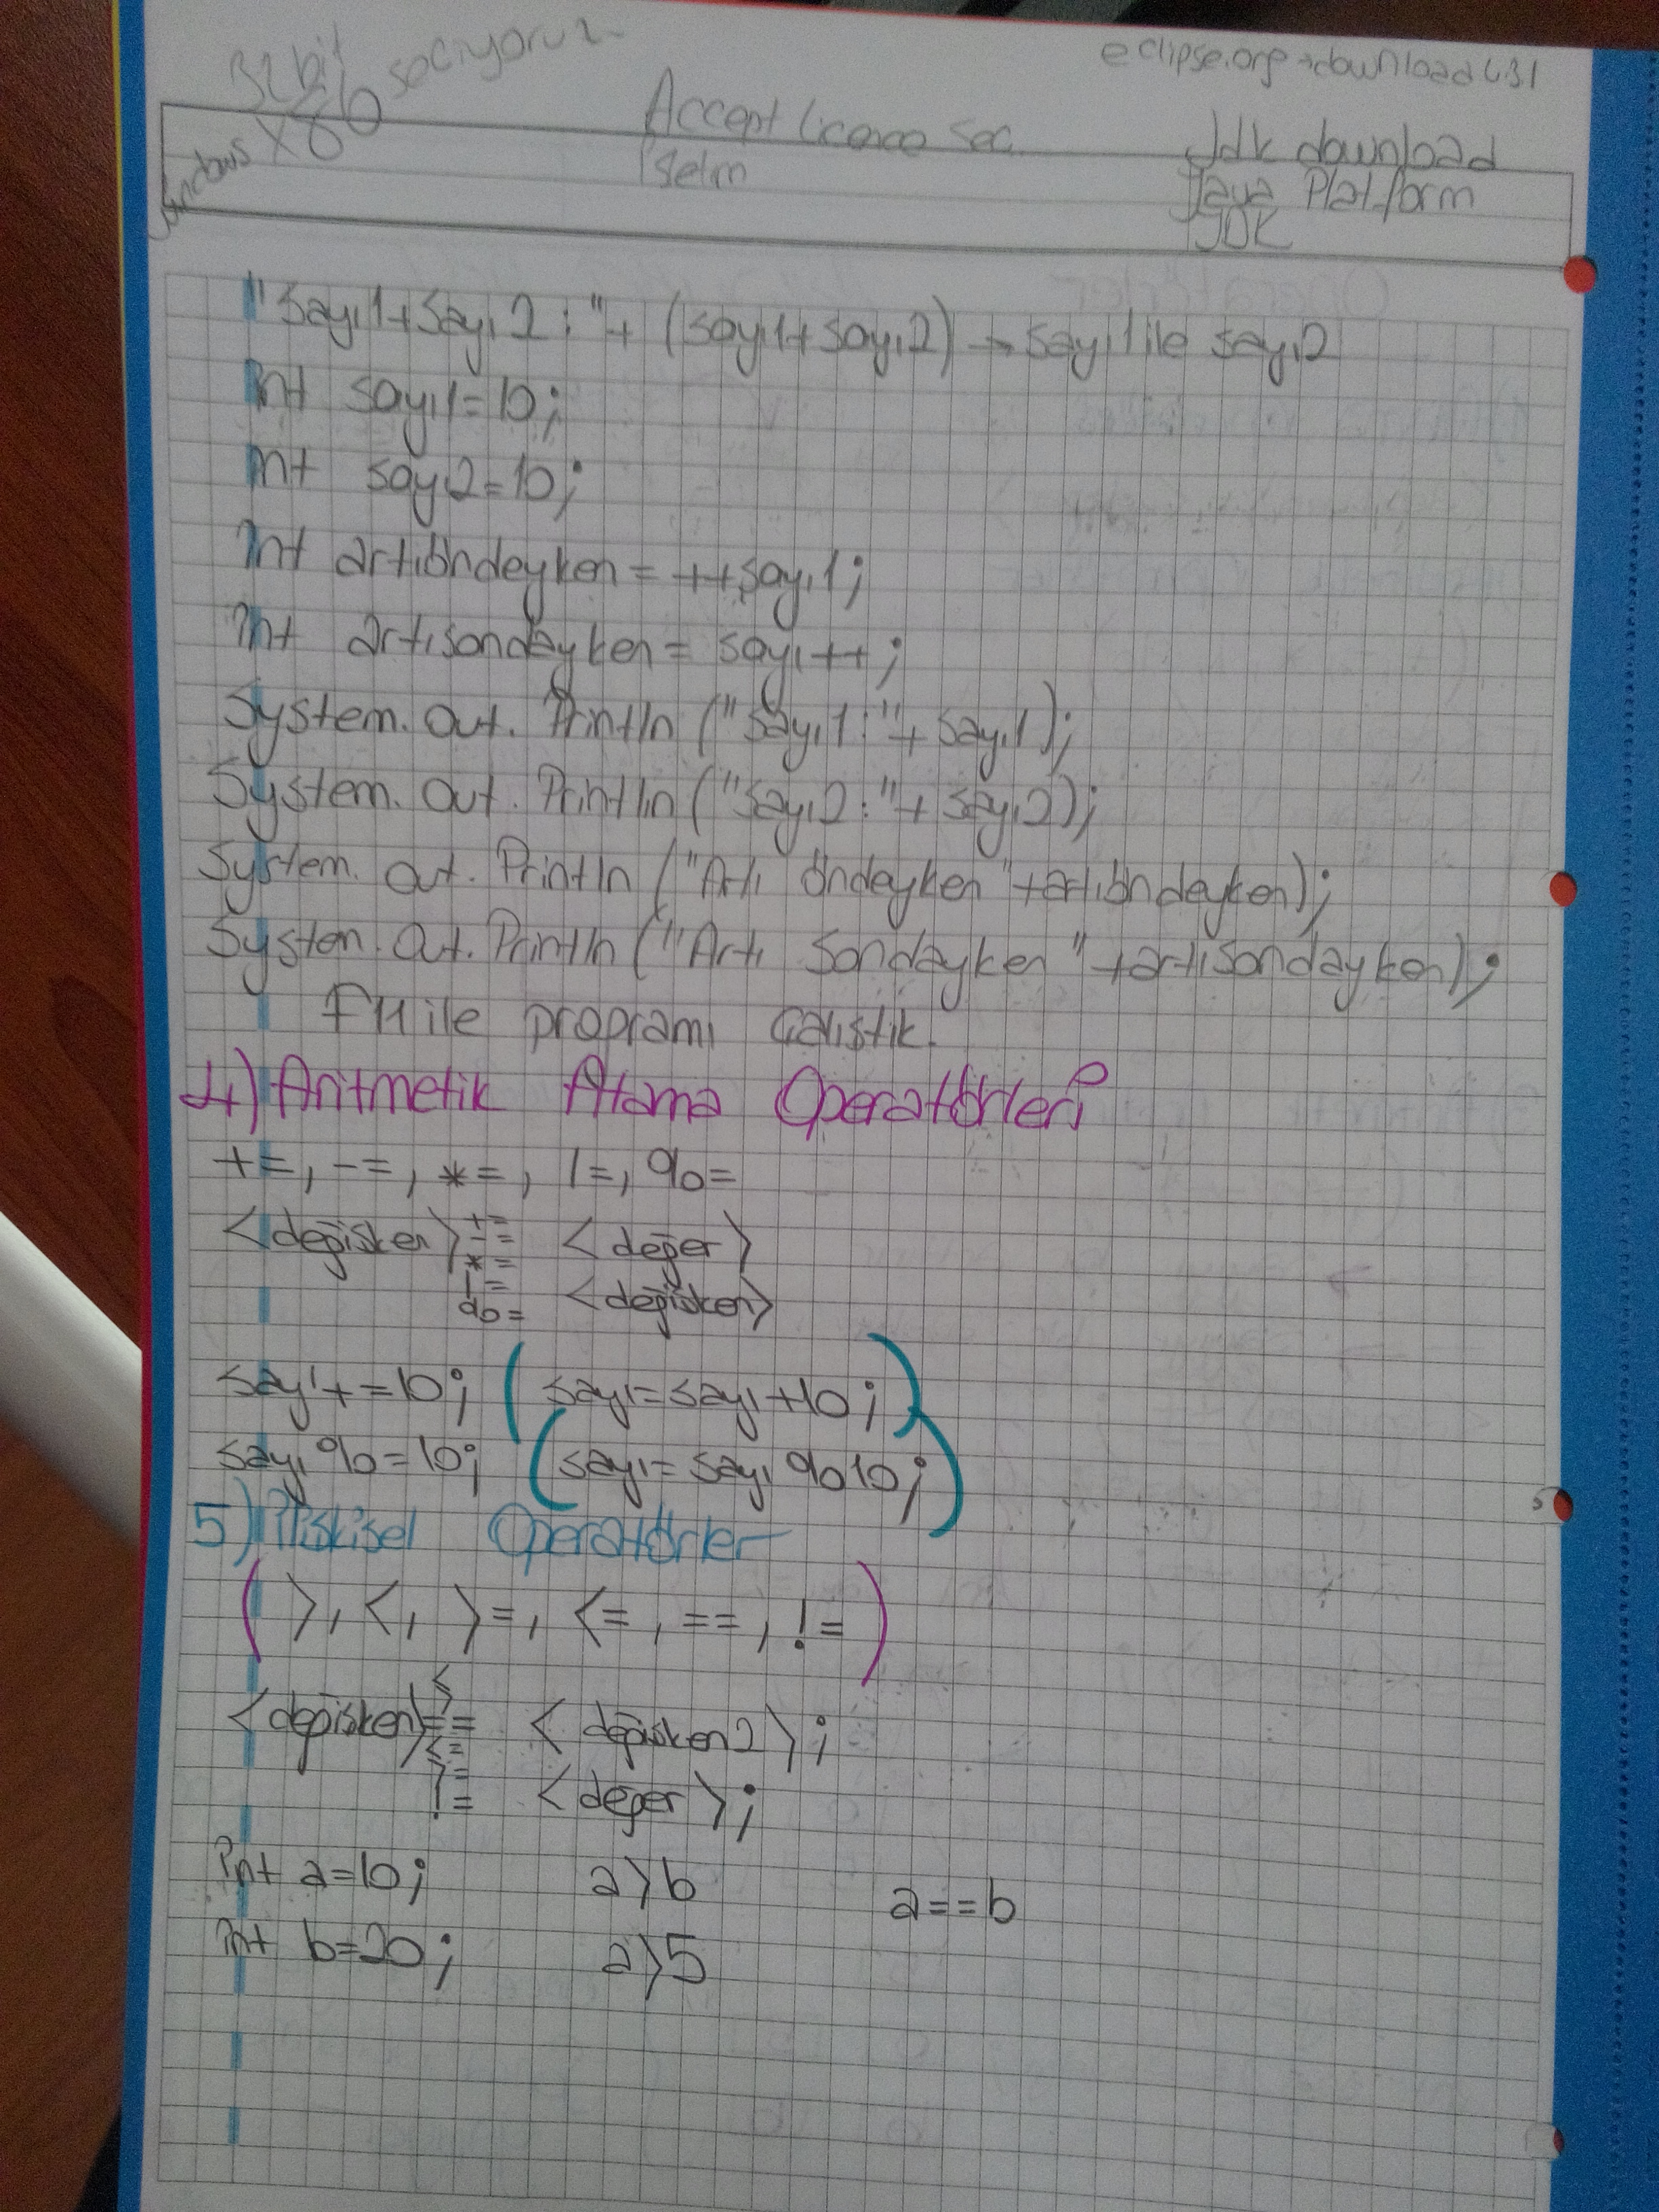 32 bit
x86 seciyoruz
windows
eclipse.org → download 431
Accept licence sec
Jdk download
Java Platform
JDK
"sayı1+sayı2:"+ (sayı1+sayı2) → sayı1 ile sayı2
int sayı1=10;
int sayı2=10;
int artıöndeyken = ++sayı1;
int artısondayken = sayı++;
System. Out. Println ("sayı1:"+ sayı1);
System. Out. Println ("sayı2:"+ sayı2);
System. Out. Println ("Artı öndeyken "+artıöndeyken);
System. Out. Println ("Artı Sondayken "+artısondayken);
F11 ile programı çalıstık.
4) Aritmetik Atama Operatörleri
+=, -=, *=, /=, %=
<değisken> += <değer>
-=
*=
/=
%= <değisken>
sayı+=10; (sayı=sayı+10;)
sayı%=10; (sayı=sayı%10;)
5) İliskisel Operatörler
( >, <, >=, <=, ==, != )
<
>
<değisken> == <değisken2>;
<=
>=
!= <değer>;
int a=10; a>b a==b
int b=20; a>5